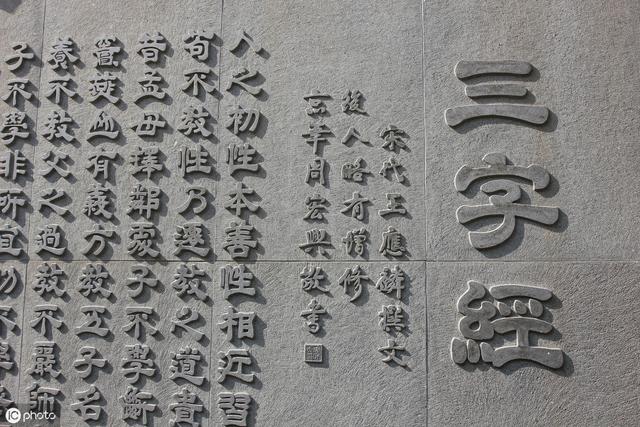 三字經
宋代王應麟撰文
後人略有增修
周宏興敬書
人之初性本善性相近習
苟不教性乃遷教之道貴
昔孟母擇鄰處子不學斷
竇燕山有義方教五子名
養不教父之過教不嚴師
子不學非所宜幼不學
IC photo